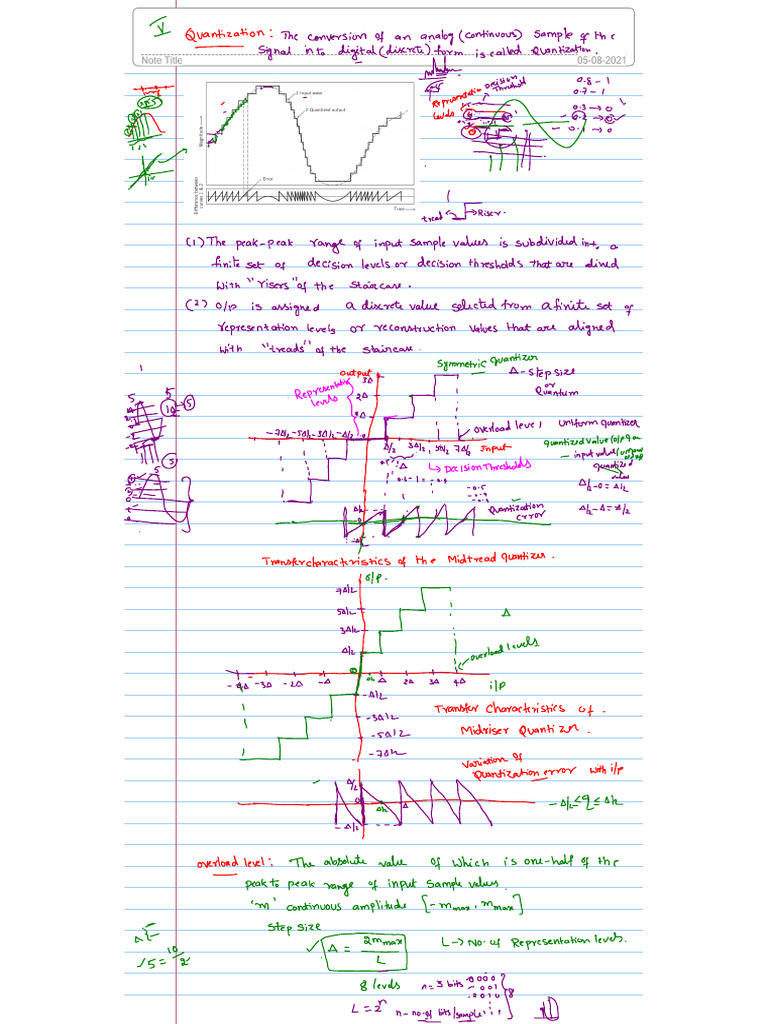 V
Quantization: The conversion of an analog (continuous) sample of the
signal into digital (discrete) form is called Quantization.
Note Title
05-08-2021
1 Input wave
2 Quantized output
Magnitude
Error
Difference between
curves 1 & 2
Time
Representation
levels
Decision
Threshold
0.8 - 1
0.7 - 1
0.3 → 0
0.1 → 0
tread
Riser.
(1) The peak-peak range of input sample values is subdivided into a
finite set of decision levels or decision thresholds that are alined
with "risers" of the staircase.
(2) O/p is assigned a discrete value selected from a finite set of
representation levels or reconstruction values that are aligned
with "treads" of the staircase.
output
3Δ
2Δ
Symmetric Quantizer
Δ - step size
or
Quantum
Representation
levels
overload level
Uniform Quantizer
-7Δ/2 -5Δ/2 -3Δ/2 -Δ/2
Δ/2 3Δ/2 5Δ/2 7Δ/2
Input
Δ
Decision Thresholds
Quantized value (o/p)
- input value
Quantized
value
Δ/2 - 0 = Δ/2
Δ/2 - Δ = Δ/2
Quantization
error
Δ/2
0
-Δ/2
5
5
10
5
Transfer characteristics of the Midtread Quantizer.
o/p.
7Δ/2
5Δ/2
3Δ/2
Δ/2
Δ
overload levels
0
-4Δ -3Δ -2Δ -Δ
Δ 2Δ 3Δ 4Δ
i/p
-Δ/2
-3Δ/2
-5Δ/2
-7Δ/2
Transfer Characteristics of.
Midriser Quantizer.
Variation of
Quantization error with i/p
Δ/2
0
Δ/2 Δ
-Δ/2
-Δ/2 ≤ q ≤ Δ/2
overload level: The absolute value of which is one-half of the
peak to peak range of input sample values.
'm' continuous amplitude [-m max, m max]
step size
Δ = 2m max / L
L → No. of Representation levels.
5 = 10/2
8 levels
n = 3 bits
000
001
010
8
L = 2^n
n - no. of bits/sample